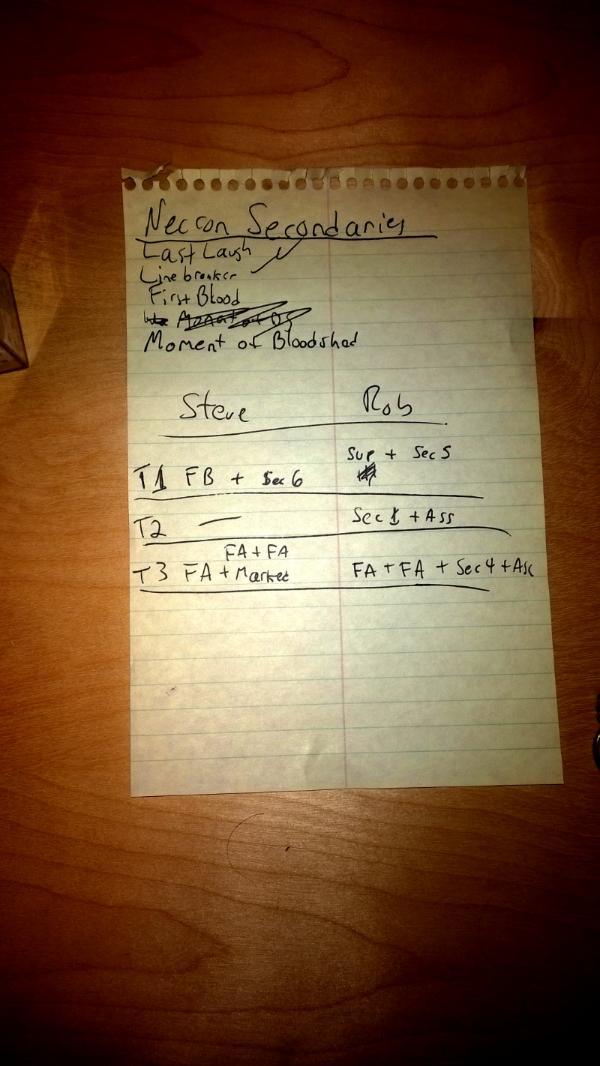 Necron Secondaries
Last Laugh
Line breaker
First Blood
Moment of Bloodshed
Steve Rob
Sup + Sec 5
T1 FB + Sec 6
T2 — Sec 1 + Ass
FA + FA
T3 FA + Market FA + FA + Sec 4 + Ass